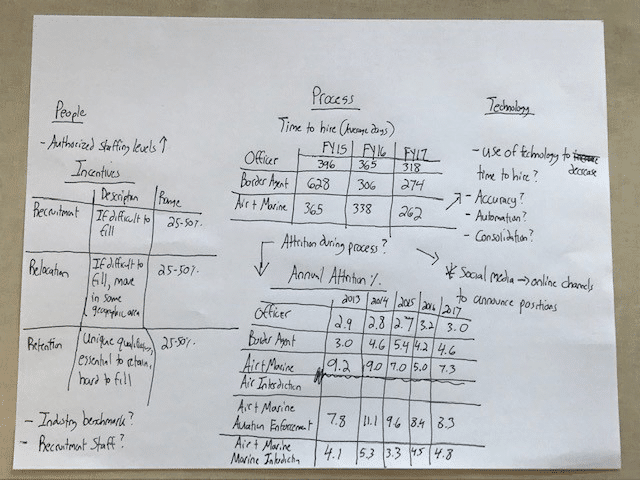 People
- Authorized staffing levels ↑
Incentives
Description Range
Recruitment If difficult to fill 25-50%
Relocation If difficult to fill, move in same geographic area 25-50%
Retention Unique qualifications, essential to retain, hard to fill 25-50%
- Industry benchmark?
- Recruitment Staff?
Process
Time to hire (Average Days)
FY15 FY16 FY17
Officer 396 365 318
Border Agent 628 306 274
Air + Marine 365 338 262
Attrition during process?
Annual Attrition %
2013 2014 2015 2016 2017
Officer 2.9 2.8 2.7 3.2 3.0
Border Agent 3.0 4.6 5.4 4.2 4.6
Air + Marine 9.2 9.0 7.0 5.0 7.3
Air Interdiction
Air + Marine
Aviation Enforcement 7.8 11.1 9.6 8.4 8.3
Air + Marine
Marine Interdictn 4.1 5.3 3.3 4.5 4.8
Technology
- use of technology to decrease
time to hire?
- Accuracy?
- Automation?
- Consolidation?
* Social media → online channels
to announce positions